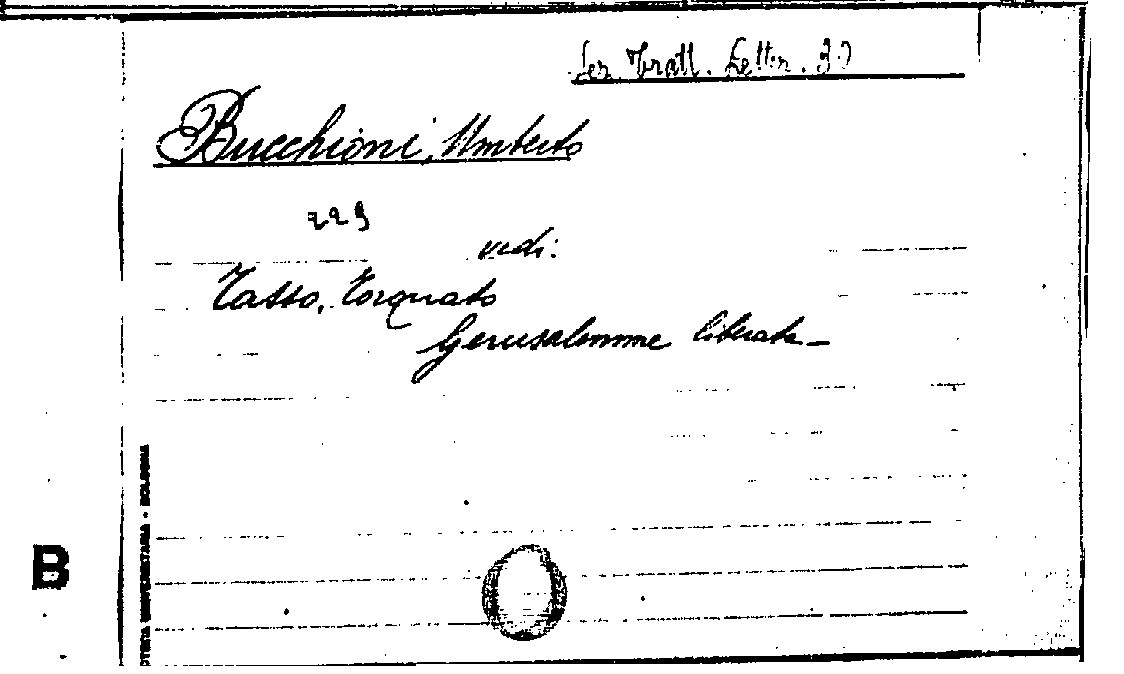 Ser. Tratt. Letter. 30
Bucchioni, Umberto
229
vedi:
Tasso, Torquato
Gerusalemme liberata_
B
OTECA UNIVERSITARIA - BOLOGNA